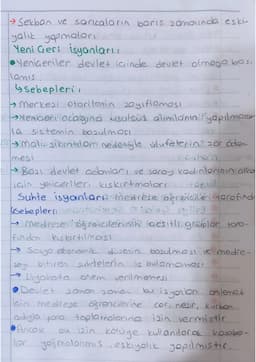 → Sekban ve sarıcaların barış zamanında eski-
yalık yapmaları
Yeniçeri isyanları:
• Yeniçeriler devlet içinde devlet olmaya baş
lamış
↳ Sebepleri:
→ Merkezi otoritenin zayıflaması
→ Yeniçeri ocağına usulsüz alımların yapılması
la sistemin bozulması
→ Mali sıkıntılar nedeniyle ulufelerin zor öden
mesi
→ Bazı devlet adamları ve saray kadınlarının
için yeniçerileri kışkırtmaları
Suhte isyanları: medrese öğrencileri tarafında
Sebepleri:
→ medrese öğrencilerinin çeşitli gruplar tara-
fından kışkırtılması
→ Sosyo ekonomik düzenin bozulması ve medre-
seyi bitiren suhtelerin iş bulamaması
→ Liyakata önem verilmemesi
• Devlet zaman zaman bu isyanları önlemek
için medrese öğrencilerine cer, nezir, kurban
adıyla para toplamalarına izin vermiştir
• Ancak bu izin kötüye kullanılarak kasaba-
lar yağmalanmış eşkıyalık yapılmıştır